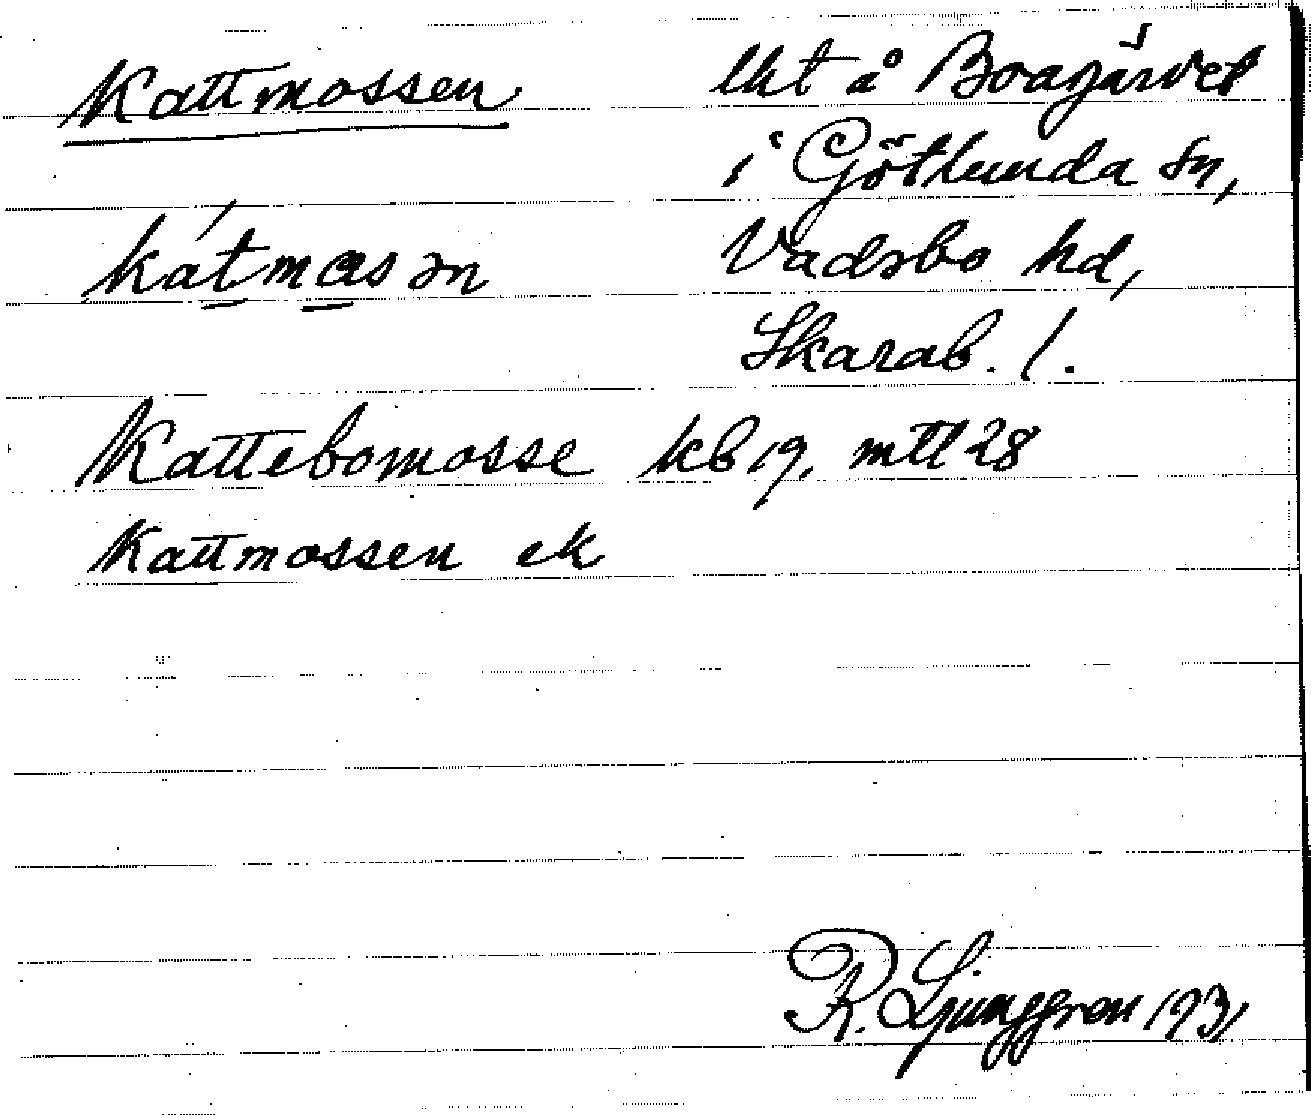 Kattmossen lht å Boagärdet
i Götlunda sn,
kátmas ən Vadsbo hd,
Skarab. l.
Kattebomosse kb 19, mtl 28
Kattmossen ek
R. Ljunggren 1931